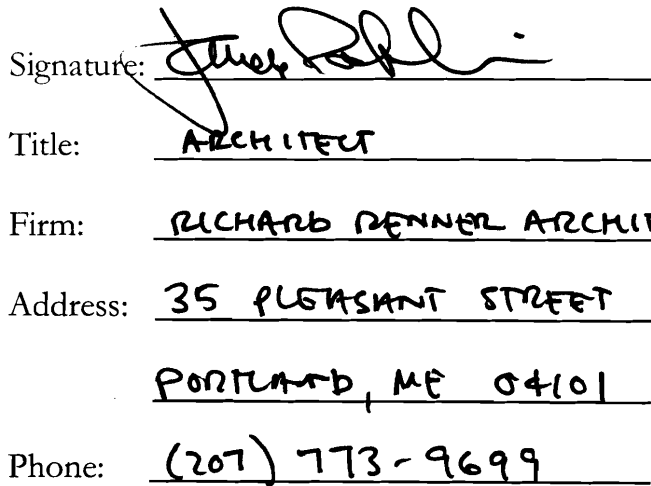 Signature:
Title: ARCHITECT
Firm: RICHARD RENNER ARCHI
Address: 35 PLEASANT STREET
PORTLAND, ME 04101
Phone: (207) 773-9699